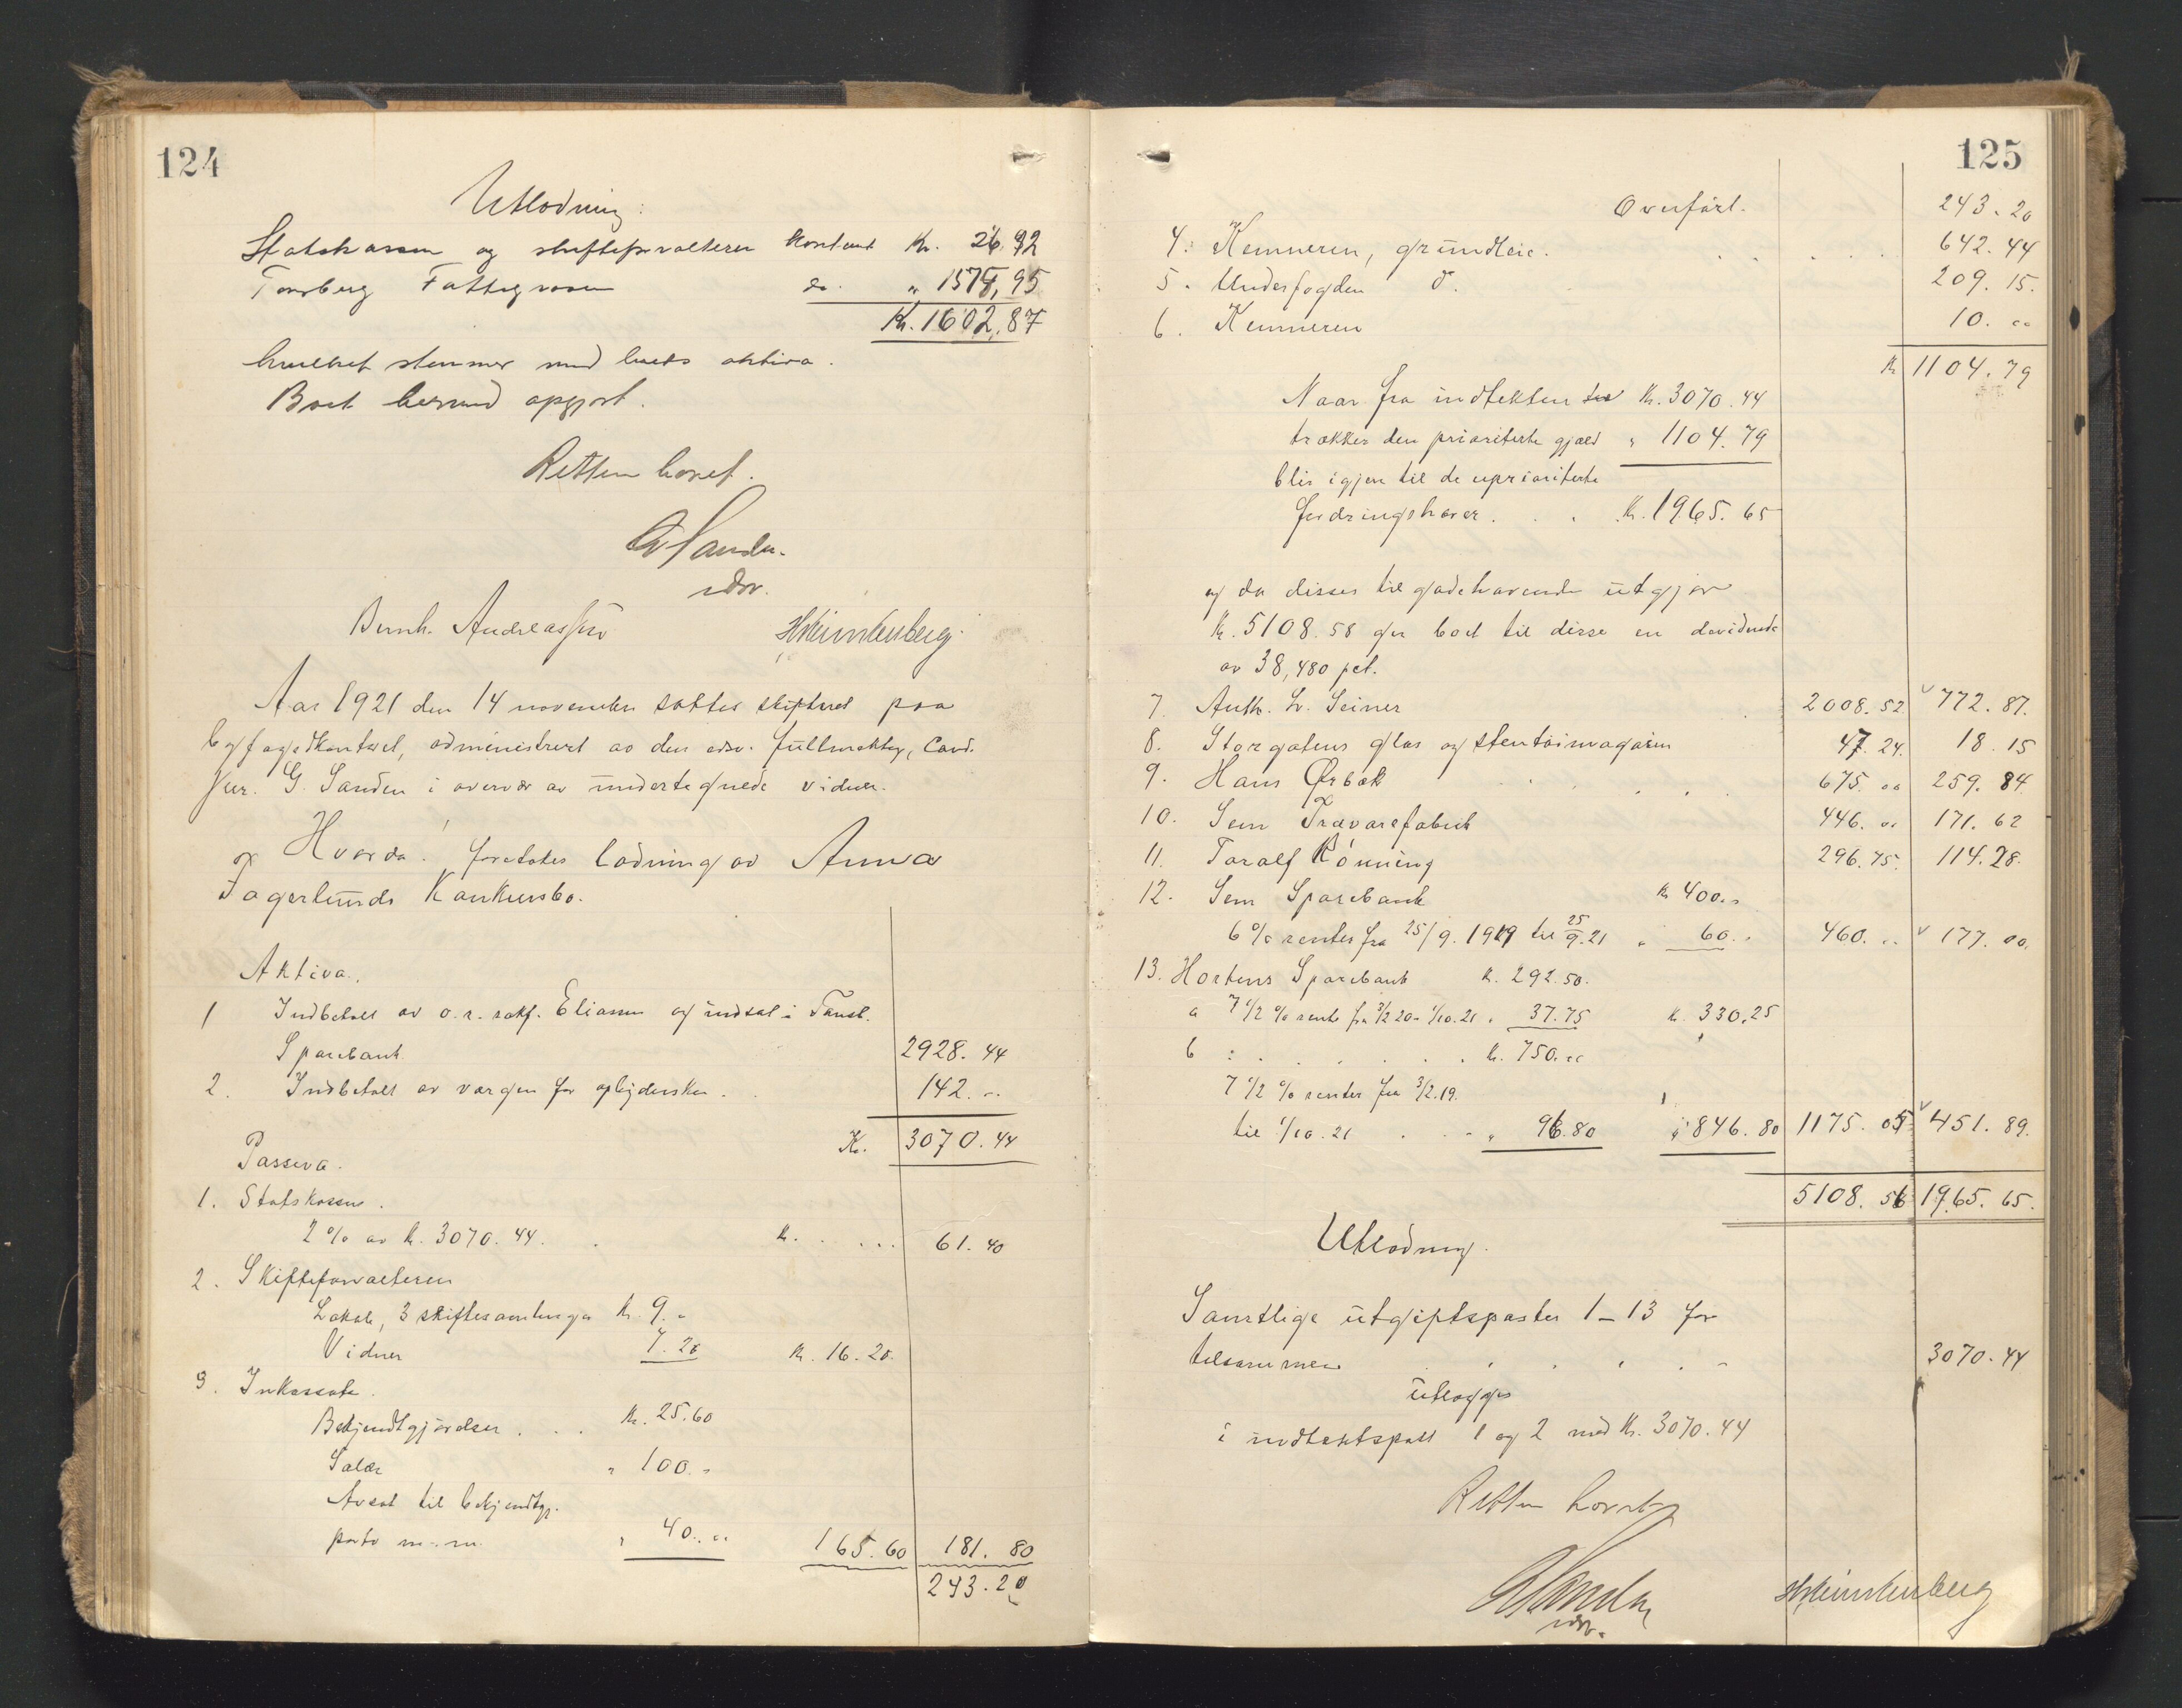 124
Utlodning:
Statskassen og skifteforvalteren kontant Kr. 26.92
Tønsberg Fattigvæsen do. " 1575,95
Kr. 1602,87
hvilket stemmer med boets aktiva.
Boet dermed opgjort.
Retten hævet.
G Sanden
edsv.
Bernh. Andreassen
Aar 1921 den 14 november sattes skifteret paa
byfogedkontoret, administrert av den edsv. fuldmektig, Cand.
jur. G. Sanden i overvær av undertegnede vidner.
Hvorda:
foretokes lodning av Anna
Fagerlunds Konkursbo.
Aktiva.
1 Indbetalt av o.r.sakf. Eliassen og indsat i Tønsb.
Sparebank 2928. 44
2. Indbetalt av værgen for opbydersken . 142. ..
Kr. 3070. 44
Passiva.
1. Statskassen.
2 % av kr. 3070. 44. kr. . . . . 61. 40
2. Skifteforvalteren
Lokale, 3 skiftesamlinger kr. 9. "
Vidner 7. 20 kr. 16. 20.
3. Inkassator.
Bekjendtgjørelser . . . kr. 25.60
Salær " 100. "
Avsat til bekjendtgj.
porto m.m. " 40. .. 165. 60 181. 80
243. 20
125
Overført. 243. 20
4. Kemneren, grundleie. . . . . . 642. 44
5. Underfogden d. 209. 15.
6. Kemneren 10. ..
Kr 1104. 79
Naar fra indtekten Kr. 3070. 44
trækkes den prioriterte gjæld " 1104. 79
blir igjen til de uprioriterte
fordringshaver . . . Kr. 1965. 65
og da disses tilgodehavende utgjør
kr. 5108. 58 gir boet til disse en dividende
av 38,480 pct.
7. Anth. L. Seiner 2008. 52 772. 87.
8. Storgatens glas og stentøimagasin 47. 24. 18. 15
9. Hans Ørbæk 675. .. 259. 84
10. Sem Trævarefabrik 446. .. 171. 62
11. Toralf Rønning 296. 75. 114. 28.
12. Sem Sparebank kr 400. "
6 % renter fra 25/9. 1919 til 25/9. 21 " 60. " 460. .. 177. 00.
13. Hortens Sparebank k. 292. 50.
a 7 1/2 % rente fra 3/2 20 - 1/10. 21 " 37. 75 k. 330,25
b : . . . . . . k. 750. ..
7 1/2 % renter fra 3/2. 19.
til 1/10. 21 . . . " 96. 80 " 846. 80 1175. 05 451. 89.
5108. 56 1965. 65.
Utlodning.
Samtlige utgiftsposter 1 - 13 for
tilsammen . . . . . 3070. 44
utlægges
i indtektspost 1 og 2 med Kr. 3070. 44
Retten hævet
G Sanden
edsv.